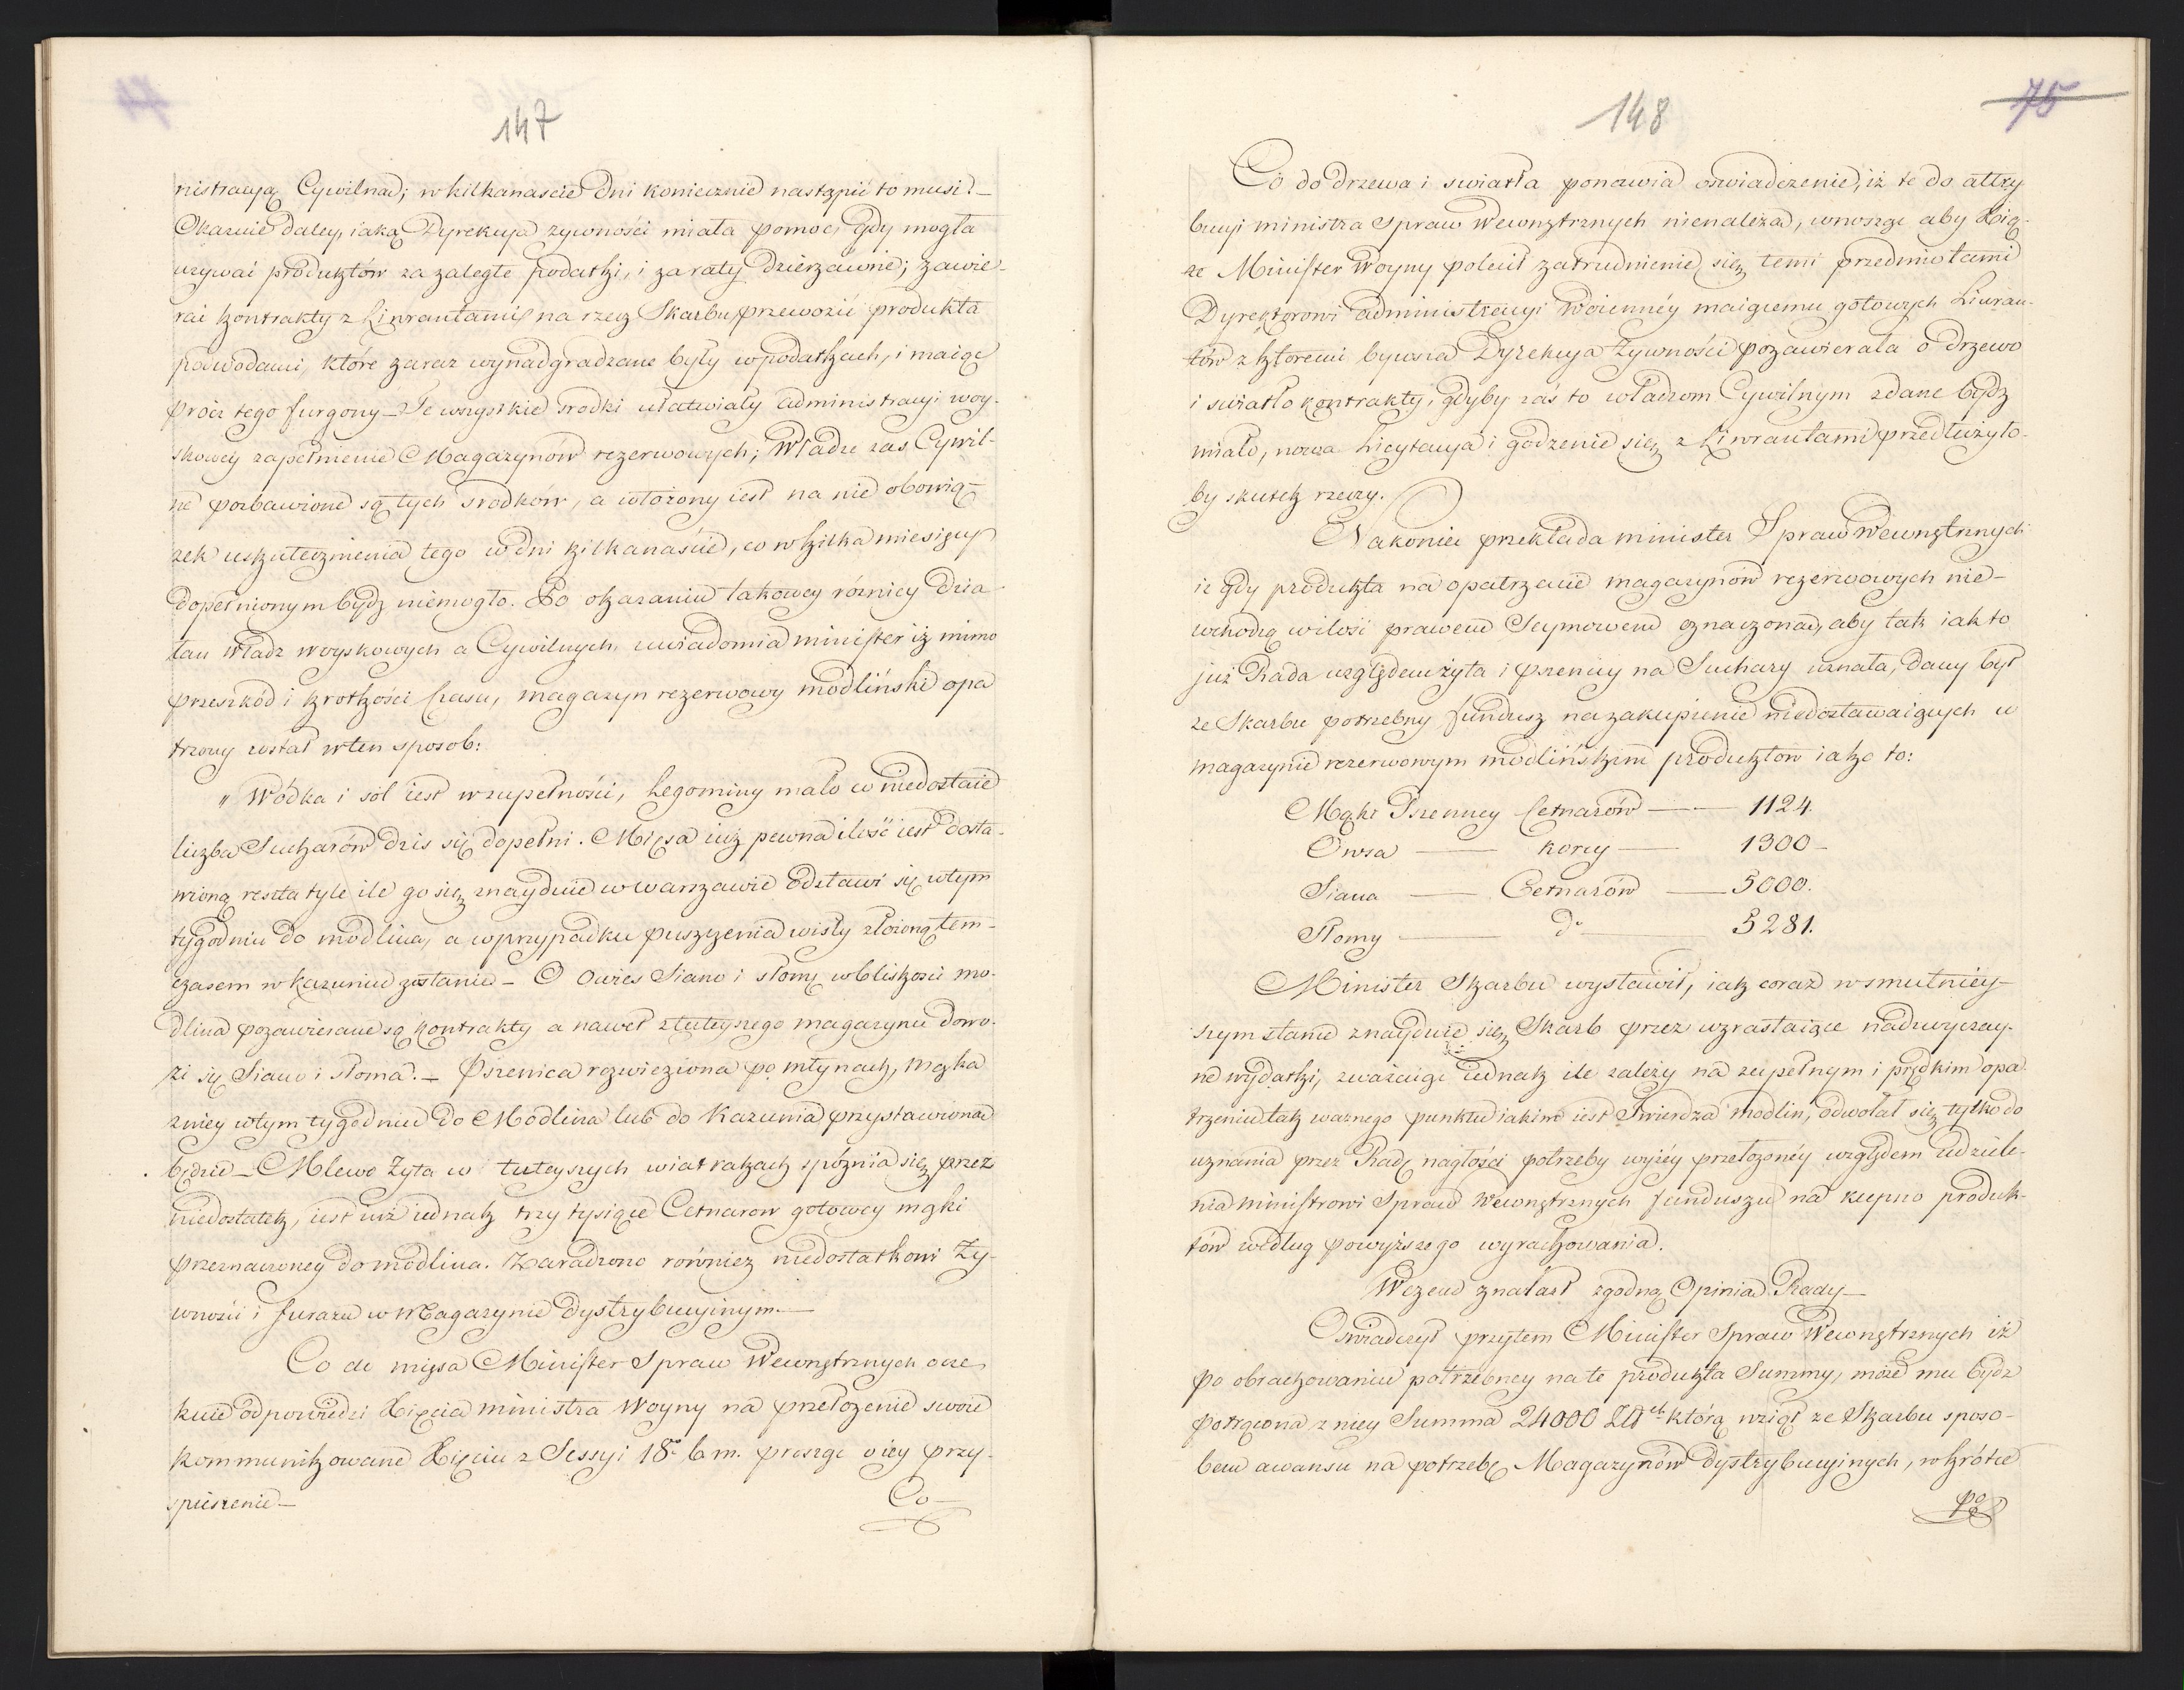 147
nistracyą Cywilna; w kilkanascie dni koniecznie nastąpić to musi. —
Okazuie daley, iaką Dyrekcya zywności miała pomoc, gdy mogła
uzywać produktów za zaległe podatki, i za raty dzierzawne; zawie-
rać kontrakty z Liwrantami na rzecz Skarbu, przewozić produkta
podwodami, które zaraz wynadgradzane były w podatkach, i maiąc
prócz tego furgony — Te wszystkie srodki ułatwiały administracyi woy-
skowey zapełnienie Magazynów rezerwowych; Władze zas Cywil-
ne pozbawione są tych srodków, a włożony iest na nie obowią-
zek uskutecznienia tego w dni kilkanaście, co w kilka miesięcy
dopełnionym bydź niemogło. Po okazaniu takowey róznicy dzia-
łań władz woyskowych a Cywilnych, uwiadomia minister iż mimo
przeszkód i krotkości czasu, magazyn rezerwowy modliński opa
trzony został w ten sposob:
„ Wódka i sól iest w zupełności, Legominy mało co niedostaie
liczba Sucharów dzis się dopełni. Mięsa iuż pewna ilość iest dosta-
wioną reszta tyle ile go się znayduie w warszawie odstawi się w tym
tygodniu do modlina, a w przypadku puszczenia wisły złożoną tem-
czasem w Kazuniu zostanie — O Owies Siano i słomę w bliskosci mo-
dlina pozawierane są kontrakty a nawet z tuteyszego magazynu dowo-
zi się Siano i słoma. — Pszenica rozwieziona po młynach, mąka
z niey w tym tygodniu do Modlina lub do Kazunia przystawiona
będzie — Mlewo Żyta w tuteyszych wiatrakach spóznia się przez
niedostatek, iest iuż iednak trzy tysiące Cetnarow gotowey mąki
przeznaczoney do modlina. Zaradzono rówmież niedostatkowi Ży-
wności i furazu w Magazynie dystrybucyinym. —
Co do mięsa Minister Spraw Wewnętrznych ocze
kuie odpowiedzi Xięcia ministra Woyny na przełozenie swoie
kommunikowane Xięciu z Sessyi 18. b. m. prosząc o iey przy-
spieszenie —
Co

148
75
Co do drzewa i swiatła ponawia oswiadczenie, iż te do attry
bucyi ministra Spraw Wewnętrznych nienależą, wnosząc aby Xią-
ze Minister Woyny polecił zatrudnienie się temi przedmiotami
Dyrektorowi administracyi Woienney maiącemu gotowych Liwran-
tów z ktoremi bywsza Dyrekcya Żywności pozawierała o drzewo
i swiatło kontrakty, gdyby zaś to władzom Cywilnym zdane bydz
miało, nowa Licytacya i godzenie się z Liwrantami przedłużyło-
by skutek rzeczy.
Nakoniec przekłada minister Spraw Wewnętrznych
iz gdy produkta na opatrzenie magazynów rezerwowych nie-
wchodzą w ilość prawem Seymowem oznaczoną, aby tak iak to
już Rada względem żyta i pszenicy na Suchary uznała, dany był
ze Skarbu potrzebny fundusz na zakupienie niedostawaiących w
magazynie rezerwowym modlińskim produktow iako to:
Mąki Pszenney Cetnarów — 1124.
Owsa — korcy — 1300 —
Siana — Cetnarów — 5000.
Słomy — d° — 5281.
Minister Skarbu wystawił, iak coraz w smutniey-
szym stanie znayduie się Skarb przez wzrastaiące nadzwyczay-
ne wydatki, zważaiąc iednak ile zależy na zupełnym i prędkim opa
trzeniu tak waznego punktu iakim iest Twierdza Modlin, odwołał się tylko do
uznania przez Radę nagłości potrzeby wyżéy przełożonéy względem udziele-
nia ministrowi Spraw Wewnętrznych funduszu na kupno produk-
tów według powyższego wyrachowania.
W czem znalazł zgodną Opinią Rady —
Oświadczył przytem Minister Spraw Wewnętrznych iż
po obrachowaniu potrzebney na te produkta Summy, może mu bydz
potrącona z niey Summa 24000 Złch którą wziął ze Skarbu sposo-
bem awansu na potrzebę Magazynów dystrybucyinych, wkrótce
po